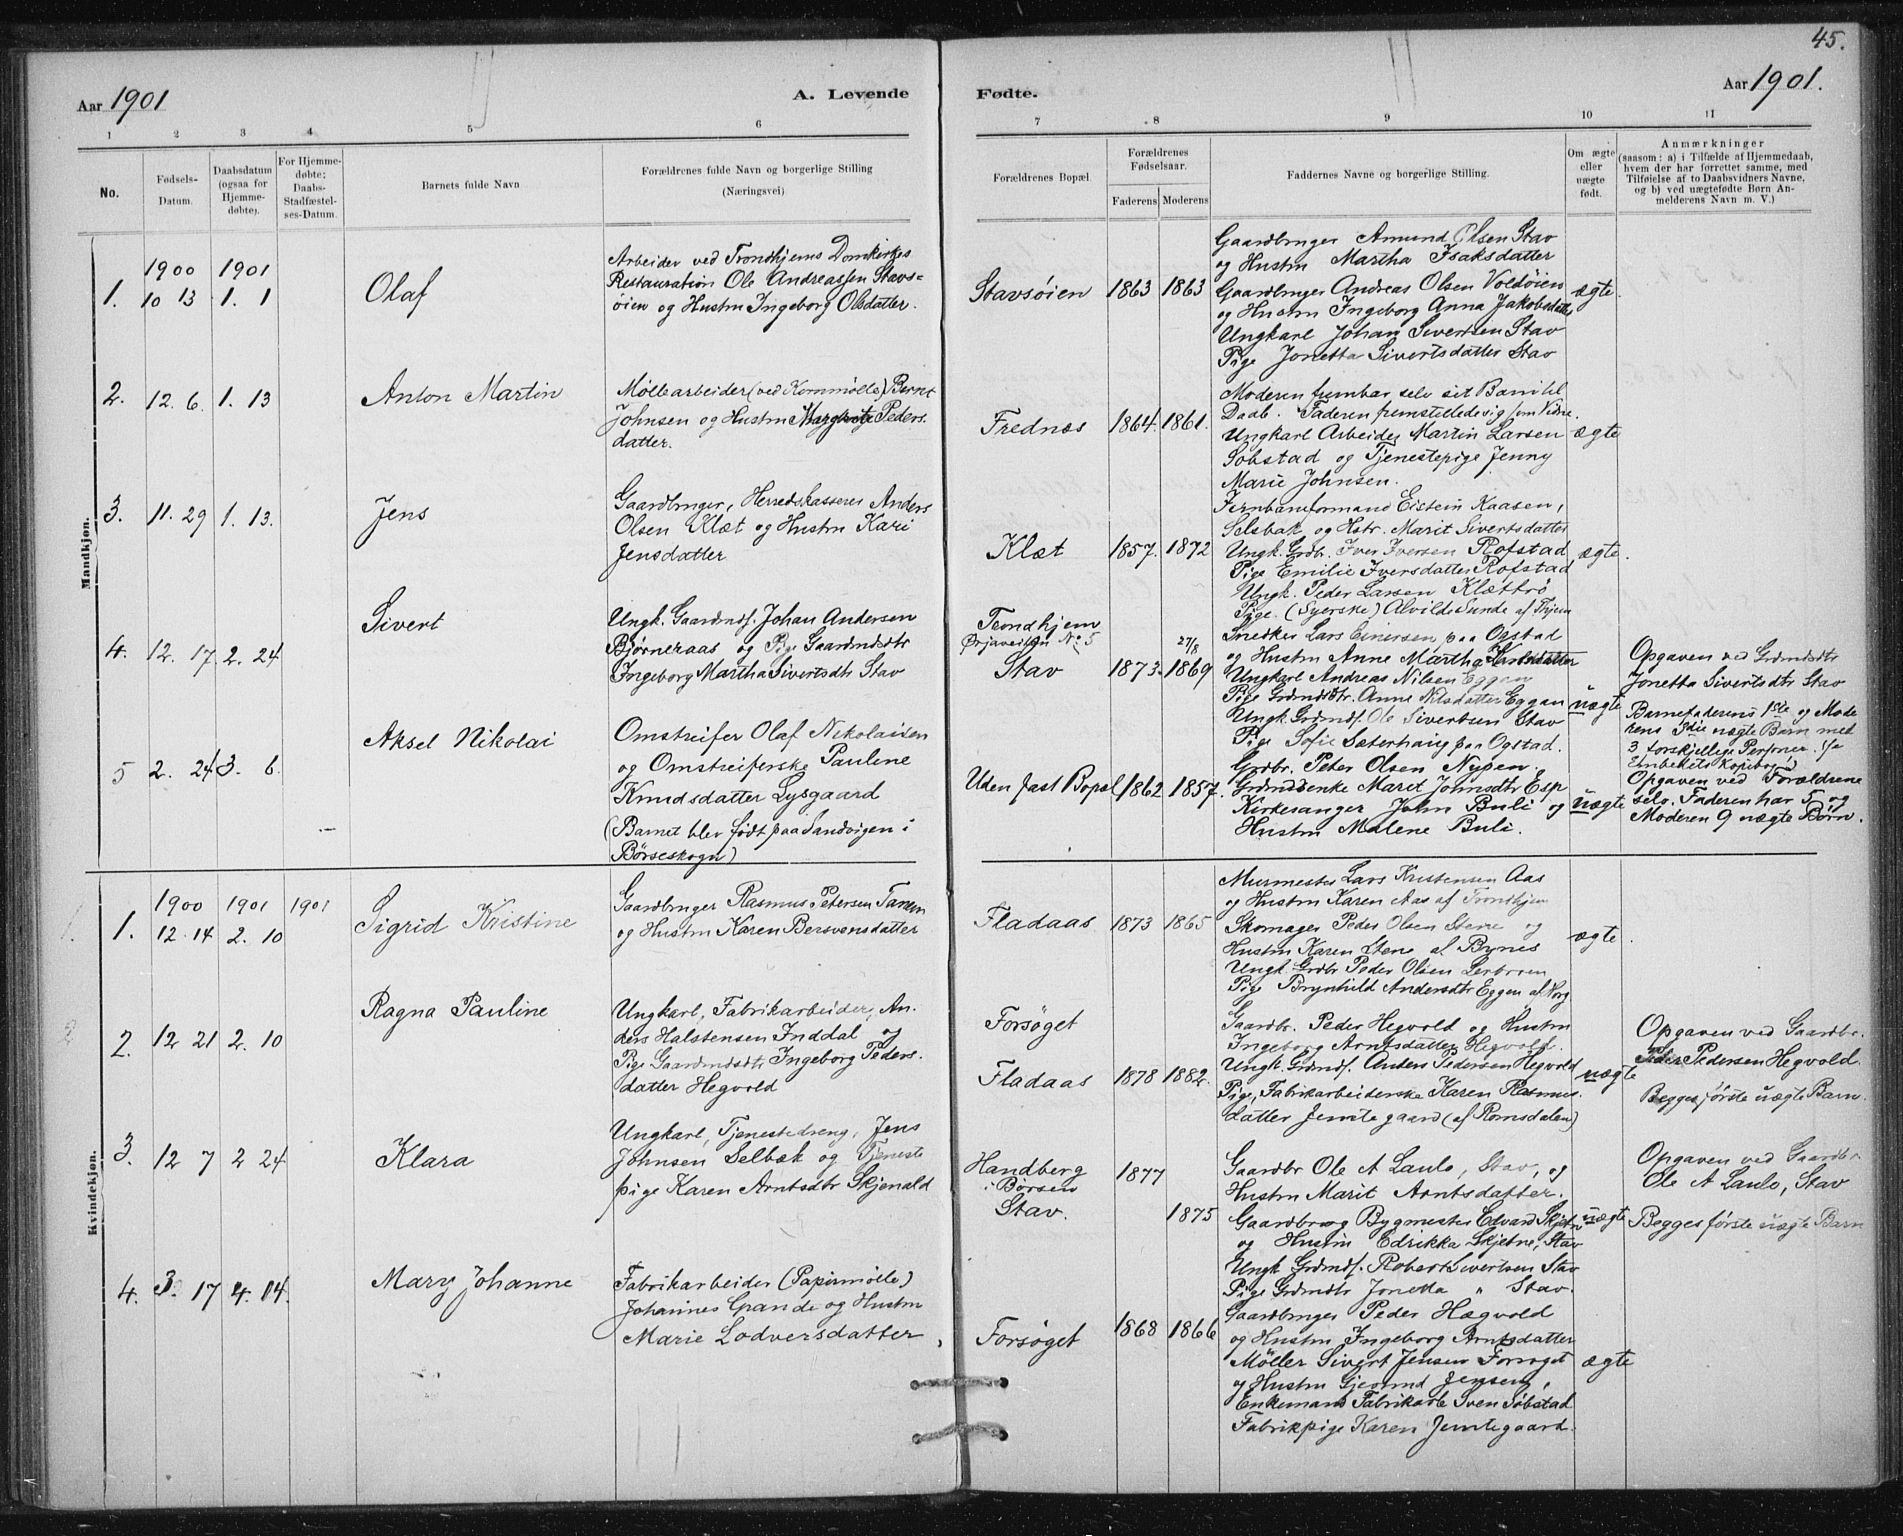 45.
Aar 1901
A. Levende Fødte.
Aar 1901.
1 2 3 4 5 6 7 8 9 10 11
No.
Fødsels-Datum.
Daabsdatum (ogsaa for Hjemme-døbte).
For Hjemme-døbte: Daabs-Stadfæstel-ses-Datum.
Barnets fulde Navn
Forældrenes fulde Navn og borgerlige Stilling (Næringsvei)
Forældrenes Bopæl.
Forældrenes Fødselsaar.
Faderens Moderens
Faddernes Navne og borgerlige Stilling.
Om ægte eller uægte født.
Anmærkninger
(saasom: a) i Tilfælde af Hjemmedaab,
hvem der har forrettet samme, med
Tilføielse af to Daabsvidners Navne,
og b) ved uægtefødte Børn An-
melderens Navn m. V.)
Mandkjøn.
1.
1900 1901
10 13 1. 1
Olaf
Arbeider ved Trondhjems Domkirkes
Restauration Ole Andreassen Stavs-
øien og Hustru Ingeborg Olsdatter.
Stavsøien 1863 1863
Gaardbruger Amund Olsen Stav
og Hustru Martha Isaksdatter
Gaardbruger Andreas Olsen Voldøien
og Hustru Ingeborg Anna Jakobsdatter
Ungkarl Johan Sivertsen Stav
Pige Jonetta Sivertsdatter Stav
ægte
2. 12. 6. 1. 13
Anton Martin
Møllearbeider (ved Kornmølle) Bernt
Johnsen og Hustru Margrete Peders-
datter.
Frednæs 1864. 1861.
Moderen frembar selv sit Barn til
Daab. Faderen fremstillede sig som Vidne.
Ungkarl Arbeider Martin Larsen
Sobstad og Tjenestepige Jenny
Marie Johnsen.
ægte
3. 11. 29 1. 13.
Jens
Gaardbruger, Herredskasserer Anders
Olsen Klæt og Hustru Kari
Jensdatter
Klæt 1857. 1872
Jernbaneformand Eistein Kaasen,
Selsbak og Hstr. Marit Sivertsdatter
Ungk. Grdbr. Iver Iversen Rofstad
Pige Emilie Iversdatter Rofstad
Ungk. Peder Larsen Klættrø
Pige. (Syerske) Alvilde Sunde af Thjem
ægte.
4. 12. 17. 2. 24
Sivert
Ungk. Gaardmdf. Johan Andersen
Bjørneraas og Pige Gaardmdsdtr
Ingeborg Martha Sivertsdtr Stav
Trondhjem
Ørjaveiten No 5
Stav 1873. 27/8 1869
Snedker Lars Einersen paa Ogstad
og Hustru Anne Martha
Ungkarl Andreas Nilsen Eggan
Pige Grdmdsdtr. Anne Nilsdatter Eggan
Ungk. Grdmdf. Ole Sivertsen Stav
Pige Sofie Sæterhaug paa Ogstad.
uægte
Opgaven ved Grdmdsdtr
Jonetta Sivertsdtr Stav
Barnefaderens 1ste og Mode
rens 3die uægte Barn med
3 forskjellige Personer.
5 2. 24. 3. 6.
Aksel Nikolai
Omstreifer Olaf Nikolaisen
og Omstreiferske Pauline
Knudsdatter Lysgaard
(Barnet blev født paa Sandvigen i
Børseskogn)
Uden fast Bopæl 1862 1857.
Grdbr. Peter Olsen Nypen.
Grdmdsenke Marit Johnsdtr Esp
Kirkesanger John Buli og
Hustru Malene Buli.
uægte
Opgaven ved Forældrene
selv. Faderen har 5 og
Moderen 9 uægte Børn.
Kvindekjøn.
1.
1900 1901 1901
12. 14 2. 10
Sigrid Kristine
Gaardbruger Rasmus Petersen Tanem
og Hustru Karen Bersvensdatter
Fladaas 1873 1865
Murmester Lars Kristensen Aas
og Hustru Karen Aas af Trondhjem
Skomager Peder Olsen Stene og
Hustru Karen Stene af Bynes
Ungk. Grdbr Peder Olsen
Pige Brynhild Andersdtr Eggen
ægte.
2. 12 21 2. 10
Ragna Pauline
Ungkarl, Fabrikarbeider, An-
ders Halstensen Inddal og
Pige Gaardmdsdtr Ingeborg Peders-
datter Hegvold
Forsøget
Fladaas 1878 1882.
Gaardbr. Peder Hegvold og Hustru
Ingeborg Arntsdatter Hegvold.
Ungk. Grdmdf. Anders Pedersen Hegvold
Pige, Fabrikarbeiderske Karen Rasmus-
datter Jemtegaard (af Romsdalen)
uægte
Opgaven ved Gaardbr.
Peder Pedersen Hegvold.
Begges første uægte Barn.
3. 12 7 2 24
Klara
Ungkarl, Tjenestedreng, Jens
Johnsen Selbæk og Tjeneste
pige Karen Arntsdtr Skjenald
Handberg
i Børsen
Stav. 1877 1875
Gaardbr Ole A Laulo, Stav, og
Hustru Marit Arntsdatter.
Gaardbr og Bygmester Edvard Skjetne
og Hustru Edrikka Skjetne, Stav
Ungk Grdmdf. Robert Sivertsen Stav
Pige Grdmdtr Jonetta " Stav.
uægte
Opgaven ved Gaardbr.
Ole A Laulo, Stav
Begges første uægte Barn
4. 3. 17 4. 14.
Mary Johanne
Fabrikarbeider (Papirmølle)
Johannes Grande og Hustru
Marie Lodversdatter
Forsøget 1868 1866
Gaardbruger Peder Hægvold
og Hustru Ingeborg Arntsdatter
Møller Sivert Jensen Forsøget
og Hustru Gjertrud Jensen,
Enkemand Fabrikarb Sven Søbstad
Fabrikpige Karen Jemtegaard.
ægte